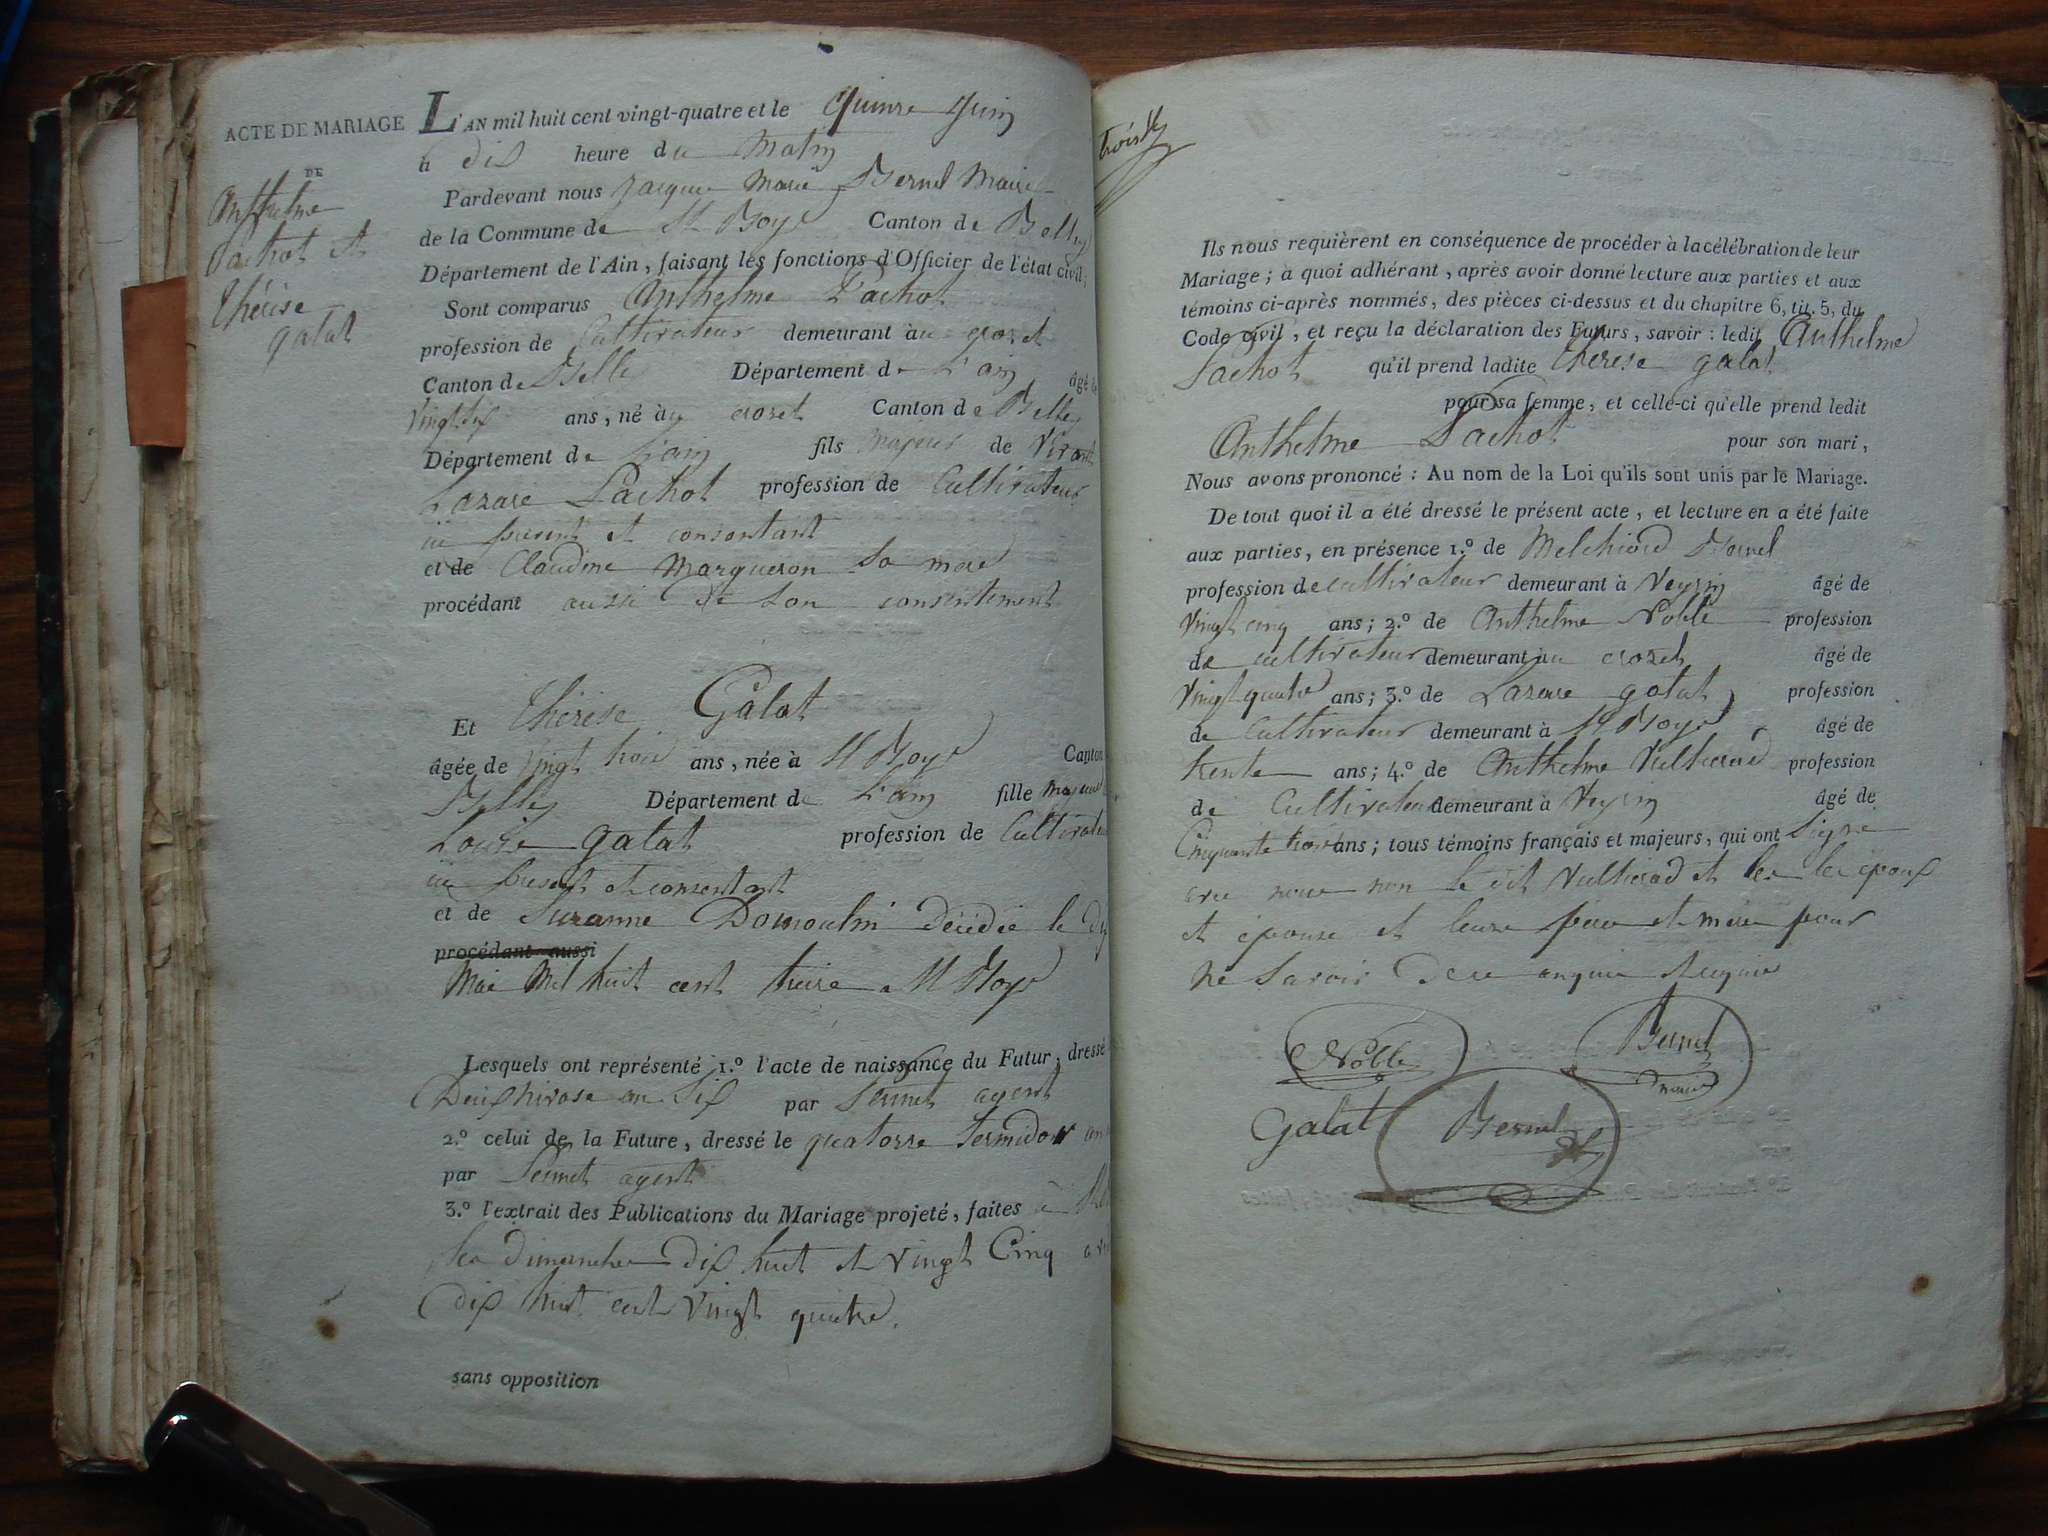 ACTE DE MARIAGE
DE
Anthelme
Pachot et
thérèse
galat
L'AN mil huit cent vingt-quatre et le quinze Juin
à dix heure du Matin
Pardevant nous Jacque Marie Bernel Maire
de la Commune de St Boys Canton de Belley
Département de l'Ain, faisant les fonctions d'Officier de l'état civil;
Sont comparus Anthelme Pachot
profession de Cultivateur demeurant àu crozet
Canton de Belle Département de L'ain âgé de
vingt six ans, né àu crozet Canton de Belley
Département de L'ain fils majeur de Vivant
Lazare Pachot profession de Cultivateur
ici présent et consentant
et de Claudine Margueron Sa mere
procédant aussi de Son consentement
Et thérèse Galat
âgée de vingt trois ans, née à St Boys Canton
Belley Département de L'ain fille majeure
Louise galat profession de Cultivateur
ici présent et consentant
et de Suzanne Domoulin décédée le dix
procédant aussi
Mai Mil huit cent treize a St Boys
Lesquels ont représenté 1.º l'acte de naissance du Futur, dressé
Deux nivose an Six par Sennet agent
2.º celui de la Future, dressé le quatorze termidor an
par Sennet agent
3.º l'extrait des Publications du Mariage projeté, faites à
les dimanches dix huit et vingt Cinq
dix huit cent vingt quatre.
sans opposition
trois
Ils nous requièrent en conséquence de procéder à la célébration de leur
Mariage; à quoi adhérant, après avoir donné lecture aux parties et aux
témoins ci-après nommés, des pièces ci-dessus et du chapitre 6, tit. 5, du
Code civil, et reçu la déclaration des Futurs, savoir: ledit Anthelme
Pachot qu'il prend ladite thérèse galat
pour sa femme, et celle-ci qu'elle prend ledit
Anthelme Pachot pour son mari,
Nous avons prononcé: Au nom de la Loi qu'ils sont unis par le Mariage.
De tout quoi il a été dressé le présent acte, et lecture en a été faite
aux parties, en présence 1.º de Melchiord Bernel
profession de cultivateur demeurant à Veyrin âgé de
vingt cinq ans; 2.º de Anthelme Noble profession
de cultivateur demeurant àu crozet âgé de
vingt quatre ans; 3.º de Lazare galat profession
de Cultivateur demeurant à St Boys âgé de
trente ans; 4.º de Anthelme Vullierod profession
de Cultivateur demeurant à Veyrin âgé de
Cinquante trois ans; tous témoins français et majeurs, qui ont Signé
avec nous non le dit Vullierod et les époux
et épouse et leurs père et mère pour
ne Savoir de ce enquis et requis
Noble
Bernel
maire
Galat
Bernel